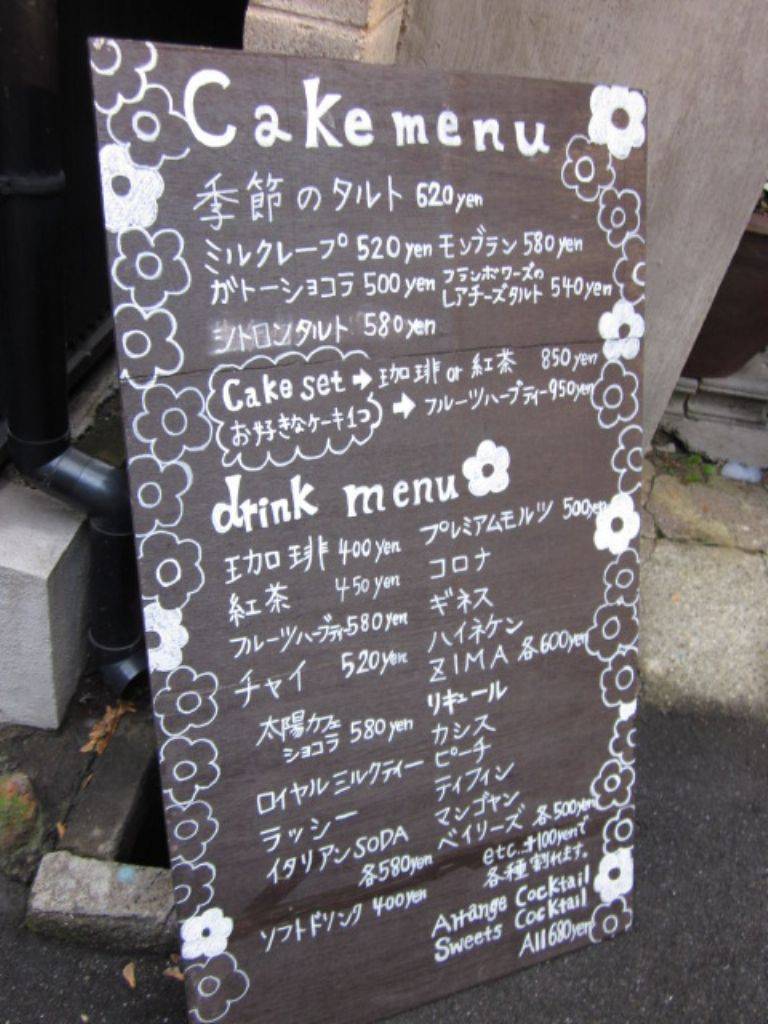 Cake menu
季節のタルト 620yen
ミルクレープ 520yen モンブラン 580yen
ガトーショコラ 500yen フランボワーズの
レアチーズタルト 540yen
シトロンタルト 580yen
Cake set → 珈琲 or 紅茶 850yen
お好きなケーキ1つ → フルーツハーブティー 950yen
drink menu
珈琲 400yen
紅茶 450yen
フルーツハーブティー 580yen
チャイ 520yen
太陽カフェ
ショコラ 580yen
ロイヤルミルクティー
ラッシー
イタリアンSODA
各580yen
ソフトドリンク 400yen
プレミアムモルツ 500yen
コロナ
ギネス
ハイネケン
ZIMA 各600yen
リキュール
カシス
ピーチ
ティフィン
マンゴヤン
ベイリーズ 各500yen
etc.+100yenで
各種割れます。
Arrange Cocktail
Sweets Cocktail
All 680yen